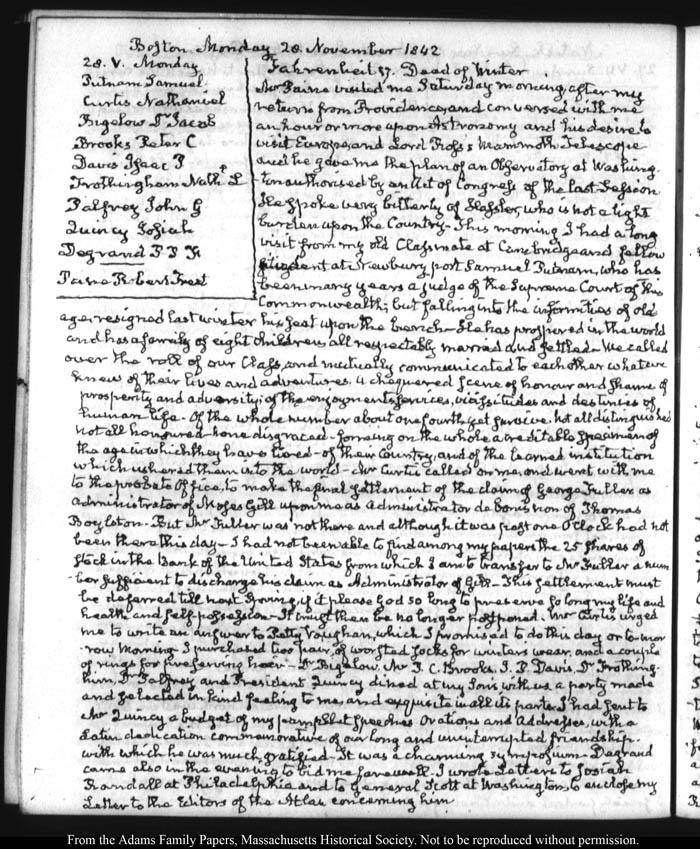 Boston Monday 28. November 1842
28. V. Monday
Putnam Samuel
Curtis Nathanuel
Bigelow Dr Jacob
Brooks Peter C
Davis Isaac P
Frothingham Nathl L
Palfrey John G
Quincy Josiah
Degrand P P F
Paine Robert Treat
Fahrenheit 37. Dead of Winter
Mr Paine visited me Saturday morning after my
return from Providence, and conversed with me
an hour or more upon Astronomy and his desire to
visit Europe, and Lord Ross's Mammoth Telescope
and he gave me the plan of an Observatory at Washing-
ton authorised by an Act of Congress of the last Session
He spoke very bitterly of Hassler, who is not a light
burden upon the Country- This morning I had a long
visit from my old Classmate at Cambridge and fellow
student at Newbury port Samuel Putnam, who has
been many years a judge of the Supreme Court of this
Commonwealth; but falling into the infirmities of old
age, resigned last winter his seat upon the bench- He has prospered in the world
and has a family of eight children, all respectably married and settled- We called
over the roll of our Class, and mutually communicated to each other what we
knew of their lives and adventures. A chequered scene of honour and shame of
prosperity and adversity; of the enjoyments, services, vicissitudes and destinies of
human life- Of the whole number about one fourth yet survive. not all distinguished
not all honoured- none disgraced- forming on the whole a creditable specimen of
the age in which they have lived- of their Country, and of the learned institution
which ushered them into the world- Mr Curtis called on me, and went with me
to the probate Office, to make the final settlement of the claim of George Fuller as
administrator of Moses Gill upon me as Administrator de bonis non of Thomas
Boylston- But Mr Fuller was not there and although it was past one O'Clock had not
been there this day- I had not been able to find among my papers the 25 shares of
stock in the Bank of the United States from which I am to transfer to Mr Fuller a num
-ber sufficient to discharge his claim as Administrator of Gill- This settlement must
be deferred till next Spring, if it please God so long to preserve so long my life and
health and self-possession- It must then be no longer postponed. Mr Curtis urged
me to write an answer to Petty Vaughan, which I promised to do this day or to-mor
-row morning- I purchased two pair of worsted socks for winters wear, and a couple
of rings for preserving hair- Dr Bigelow, Mr P. C. Brooks, I. P. Davis, Dr Frothing-
ham, Dr Palfrey and President Quincy dined at my Son's with us a party made
and selected in kind feeling to me, and exquisite in all its parts. I had sent to
Mr Quincy a budget of my pamphlet Speeches Orations and Addresses, with a
Latin dedication commemorative of our long and uninterrupted friendship.
with which he was much gratified- It was a charming symposium- Degrand
came also in the evening to bid me farewell. I wrote Letters to Josiah
Randall at Philadelphia and to General Scott at Washington, to enclose my
Letter to the Editors of the Atlas concerning him
From the Adams Family Papers, Massachusetts Historical Society. Not to be reproduced without permission.